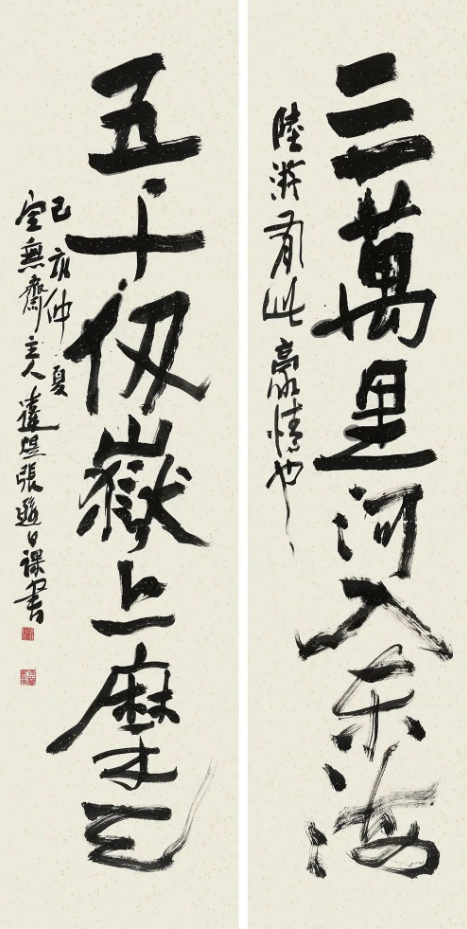 三萬里河入东海
陸游有此豪情也
五千仞嶽上摩天
己亥仲夏
空無齋主人張日課書